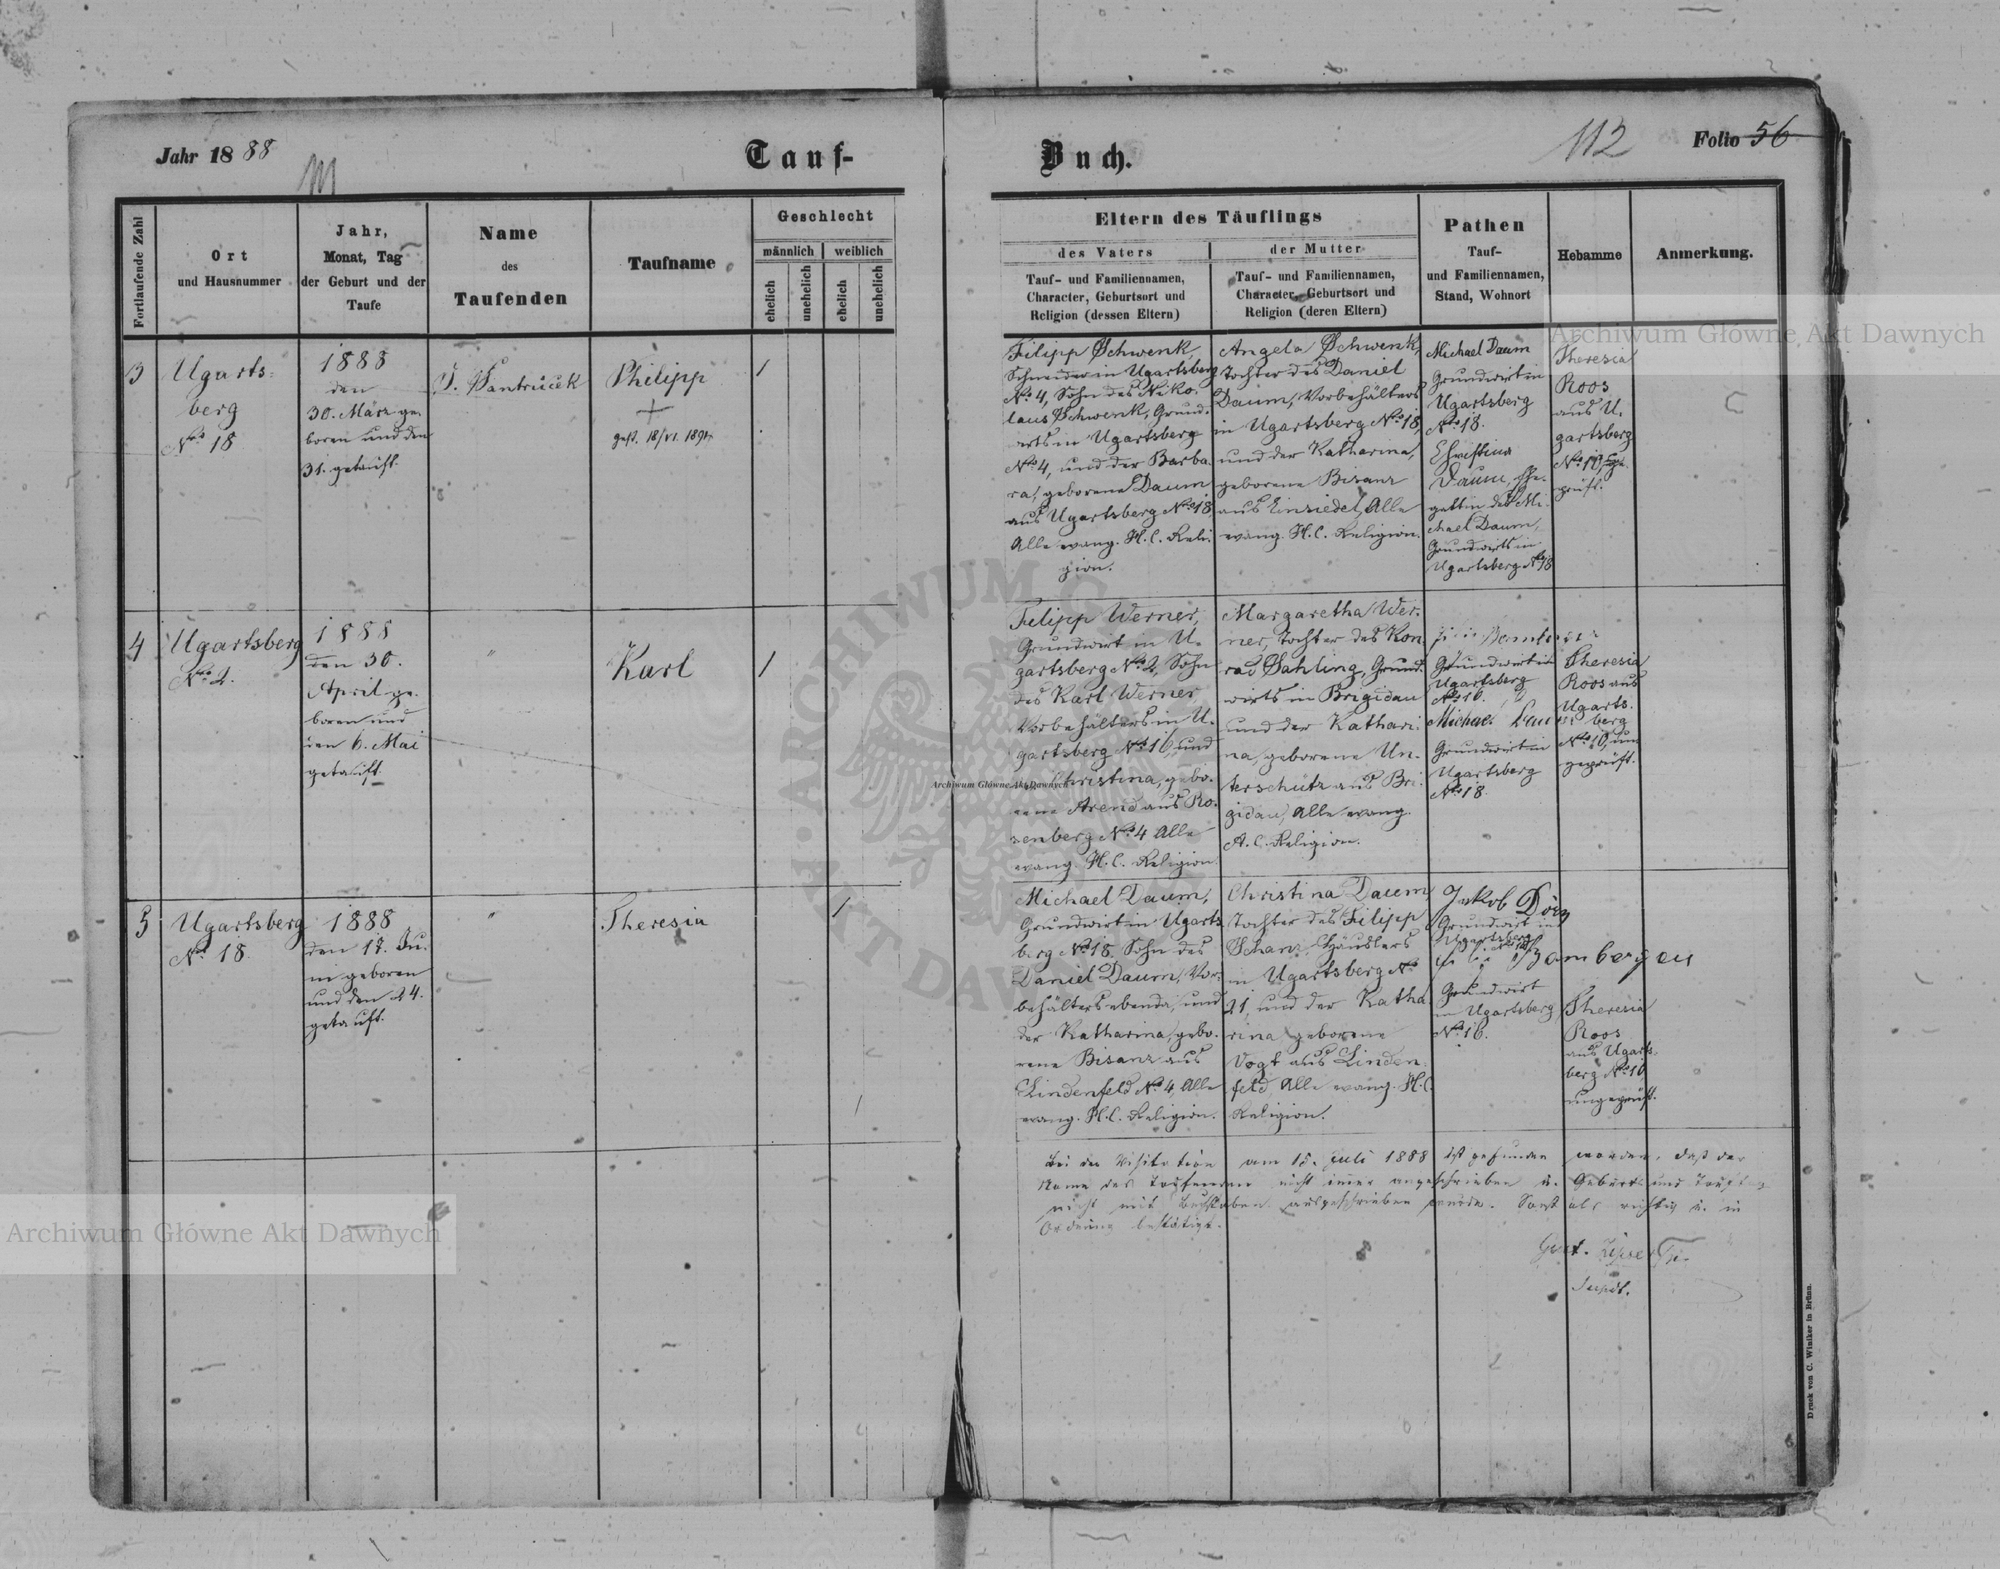 Jahr 1888
111
Tauf-
Buch.
112
Folio 56
Fortlaufende Zahl
Ort
und Hausnummer
Jahr,
Monat, Tag
der Geburt und der
Taufe
Name
des
Taufenden
Taufname
Geschlecht
männlich
weiblich
ehelich
unehelich
ehelich
unehelich
Eltern des Täuflings
des Vaters
Tauf- und Familiennamen,
Character, Geburtsort und
Religion (dessen Eltern)
der Mutter
Tauf- und Familiennamen,
Character, Geburtsort und
Religion (deren Eltern)
Pathen
Tauf-
und Familiennamen,
Stand, Wohnort
Hebamme
Anmerkung.
3
Ugarts-
berg
No. 18
1888
den
30. März ge-
boren und den
31. getauft.
Philipp
+
gest. 18/VI. 1891
1
Filipp Schwenk,
Schneider in Ugartsberg
No. 4, Sohn des Niko-
laus Schwenk, Grund-
wirts in Ugartsberg
No. 4, und der Barba-
ra, geborene Daum
aus Ugartsberg No. 18
Alle evang. H.C. Reli-
gion.
Angela Schwenk,
Tochter des Daniel
Daum, Vorbehälters
in Ugartsberg No. 18,
und der Katharina,
geborene Bisanz
aus Einsiedel, Alle
evang. H.C. Religion.
Michael Daum
Grundwirt in
Ugartsberg
No. 18.
Christina
Daum, Ehe-
gattin des Mi-
chael Daum,
Grundwirts in
Ugartsberg No. 18
Theresia
Roos
aus U-
gartsberg
No. 10,
geprüft.
4
Ugartsberg
No. 2.
1888
den 30.
April ge-
boren und
den 6. Mai
getauft.
"
Karl
1
Filipp Werner,
Grundwirt in U-
gartsberg No. 2, Sohn
des Karl Werner
Vorbehälters in U-
gartsberg No. 16, und
Christina, gebo-
rene Arend aus Ro-
senberg No. 4 Alle
evang. H.C. Religion.
Margaretha Wer-
ner, Tochter des Kon-
rad Sahling, Grund-
wirts in Brigidau
und der Kathari-
na, geborene Un-
terschütz aus Bri-
gidau, Alle evang.
A.C. Religion.
Grundwirt in
Ugartsberg
No. 16.
Michael
Grundwirt in
Ugartsberg
No. 18.
Theresia
Roos aus
Ugarts-
berg
No. 10, un-
geprüft.
5
Ugartsberg
No. 18.
1888
den 17. Ju-
ni geboren
und den 24.
getauft.
"
Theresia
1
Michael Daum,
Grundwirt in Ugarts-
berg No. 18. Sohn des
Daniel Daum, Vor-
behälters ebenda, und
der Katharina, gebo-
rene Bisanz aus
Lindenfeld No. 4, Alle
evang. H.C. Religion.
Christina Daum
Tochter des Filipp
Schanz Häuslers
in Ugartsberg No.
21, und der Katha-
rina geborene
Vogt aus Linden-
feld, Alle evang. H.C.
Religion.
Jakob
Grundwirt in
Ugartsberg
Bamberger
Grundwirt
in Ugartsberg
No. 16.
Theresia
Roos
aus Ugarts-
berg No. 10
ungeprüft.
Bei der Visitation am 15. Juli 1888 ist gefunden worden, daß der
Name des Taufenden nicht immer angeschrieben u. Geburts und Tauftag
nicht mit Buchstaben ausgeschrieben wurde. Sonst als richtig u. in
Ordnung bestätigt.
Supdt.
Druck von C. Winiker in Brünn.
Archiwum Główne Akt Dawnych
Archiwum Główne Akt Dawnych
Archiwum Główne Akt Dawnych